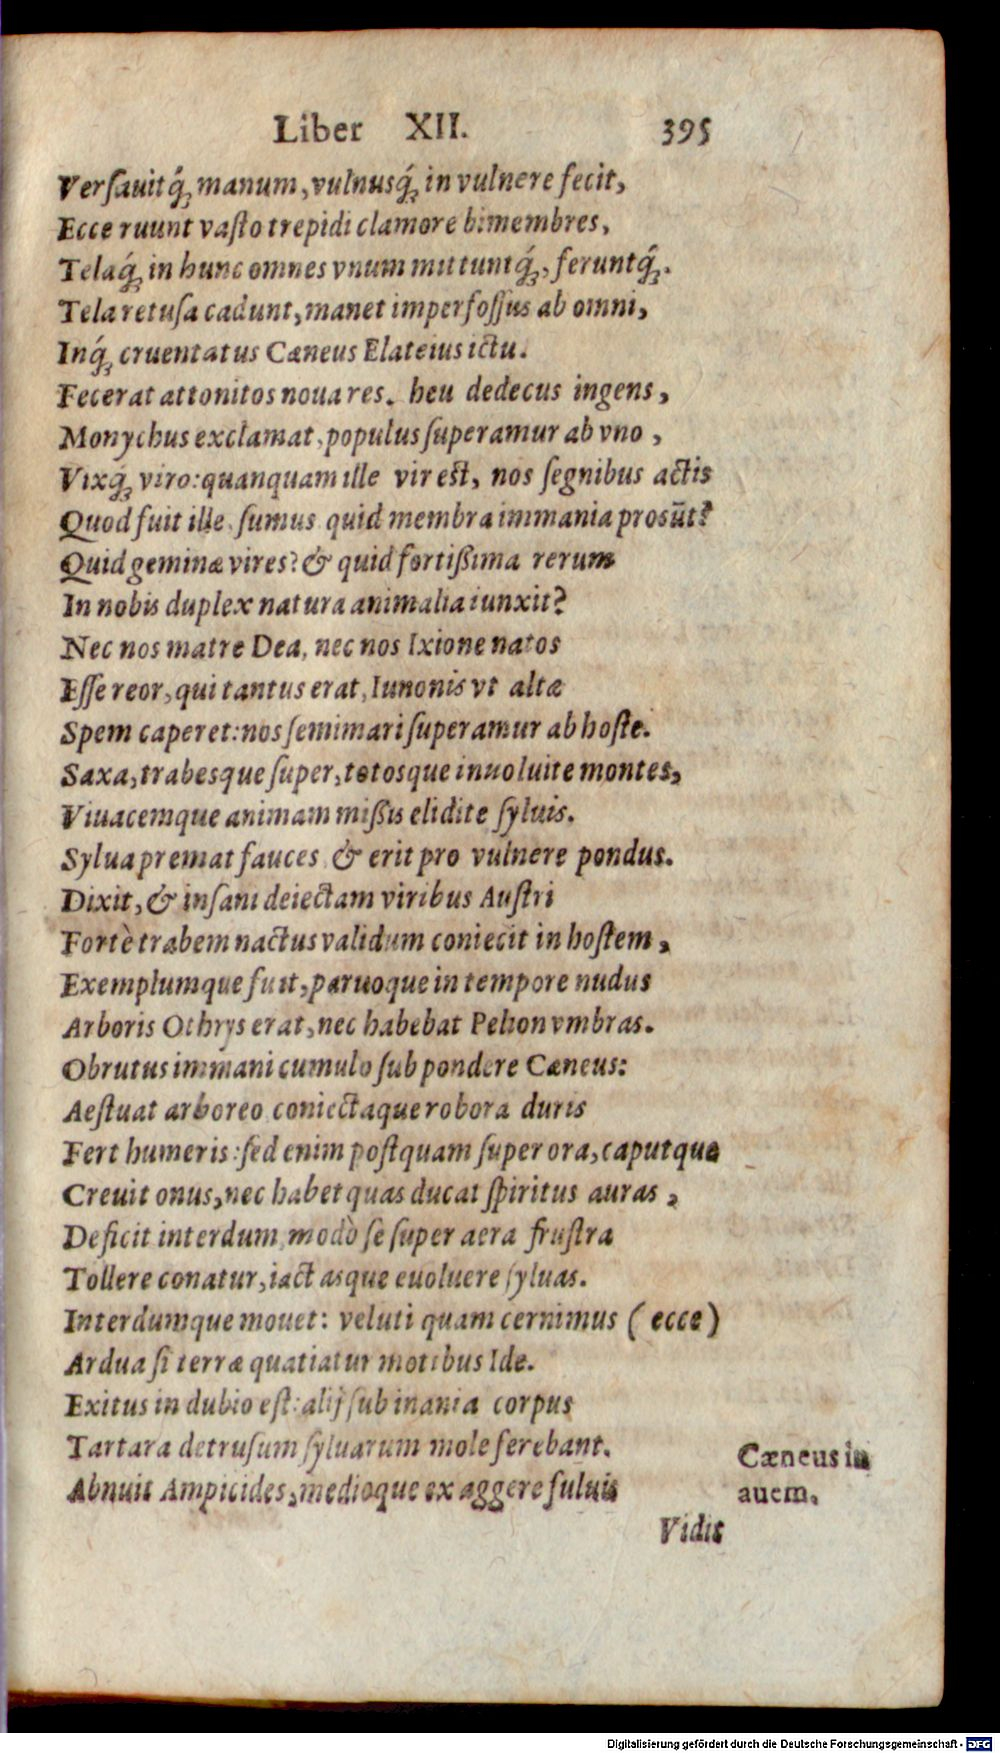 Liber XII. 395
Verſauitq́; manum, vulnusq́; in vulnere fecit,
Ecce ruunt vaſto trepidi clamore bimembres,
Telaq́; in hunc omnes vnum mittuntq́;, feruntq́;.
Tela retuſa cadunt, manet imperfoſſus ab omni,
Inq́; cruentatus Cæneus Elateius ictu.
Fecerat attonitos noua res. heu dedecus ingens,
Monychus exclamat, populus ſuperamur ab vno,
Vixq́; viro: quanquam ille vir est, nos ſegnibus actis
Quod fuit ille, ſumus quid membra immania proſūt?
Quid geminæ vires? & quid fortißima rerum
In nobis duplex natura animalia iunxit?
Nec nos matre Dea, nec nos Ixione natos
Eſſe reor, qui tantus erat, Iunonis vt altæ
Spem caperet: nos ſemimari ſuperamur ab hoſte.
Saxa, trabesque ſuper, totosque inuoluite montes,
Viuacemque animam mißis elidite ſyluis.
Sylua premat fauces & erit pro vulnere pondus.
Dixit, & inſani deiectam viribus Auſtri
Fortè trabem nactus validum coniecit in hoſtem,
Exemplumque fuit, paruoque in tempore nudus
Arboris Othrys erat, nec habebat Pelion vmbras.
Obrutus immani cumulo ſub pondere Cæneus:
Aeſtuat arboreo coniectaque robora duris
Fert humeris: ſed enim poſtquam ſuper ora, caputque
Creuit onus, nec habet quas ducat ſpiritus auras,
Deficit interdum, modò ſe ſuper aera fruſtra
Tollere conatur, iactasque euoluere ſyluas.
Interdumque mouet: veluti quam cernimus (ecce)
Ardua ſi terræ quatiatur motibus Ide.
Exitus in dubio eſt: alij ſub inania corpus
Tartara detruſum ſyluarum mole ferebant.
Abnuit Ampicides, medioque ex aggere fuluis
Cæneus in
auem.
Vidit
Digitalisierung gefördert durch die Deutsche Forschungsgemeinschaft - DFG